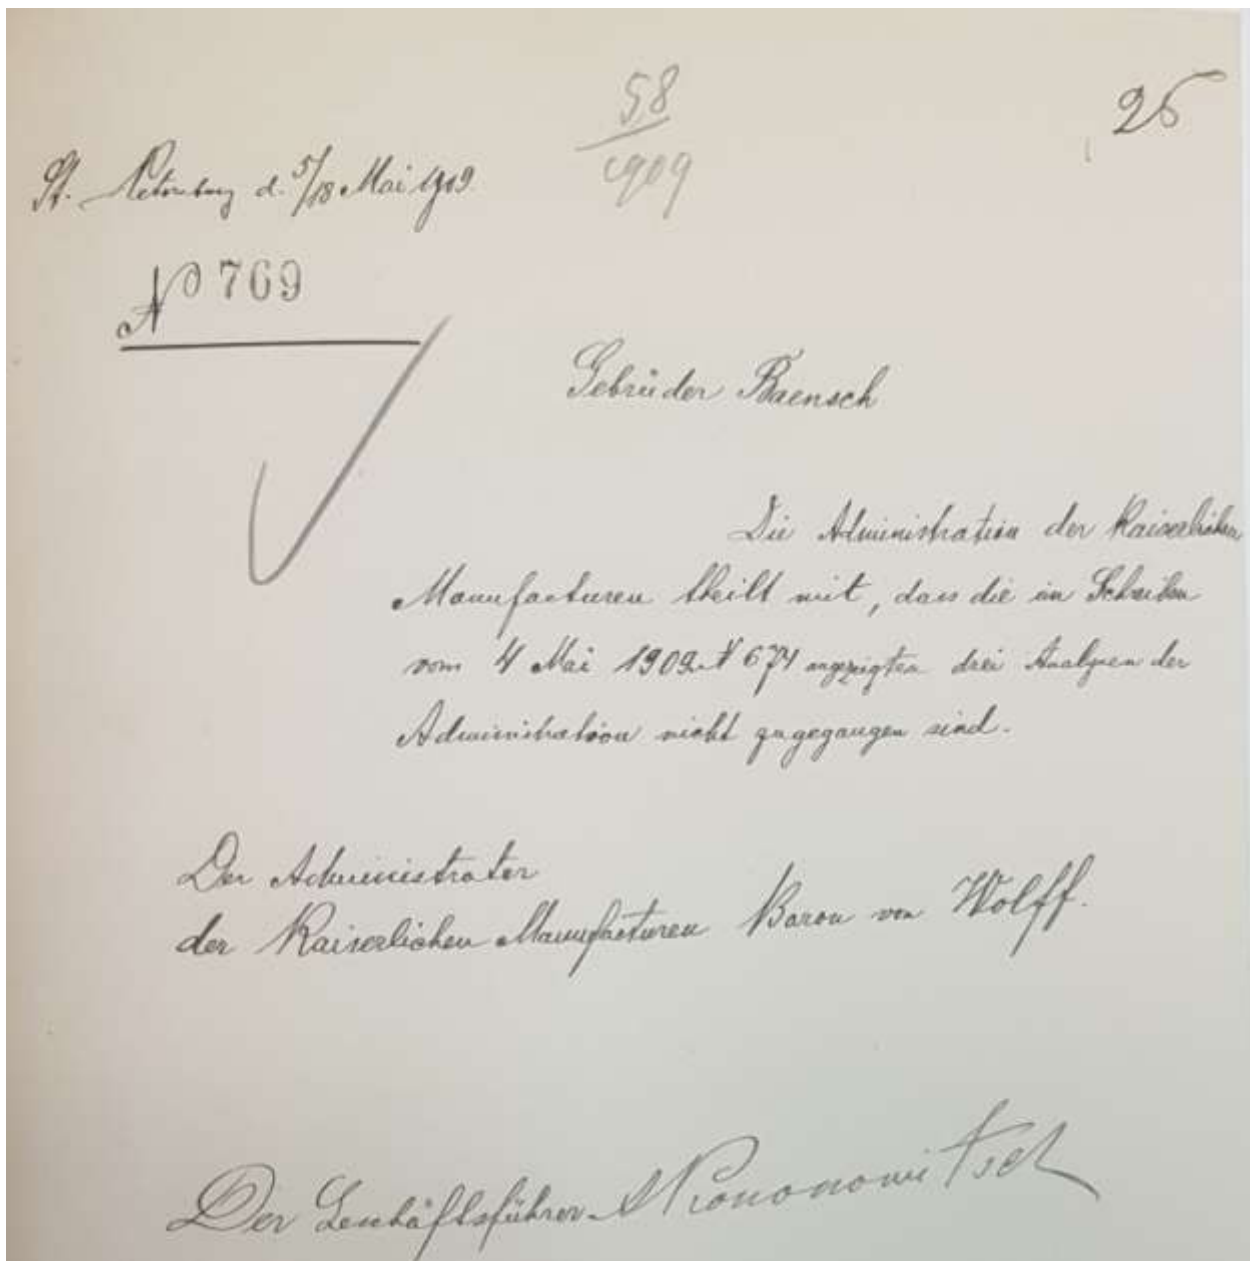 58
1909
25
St. Petersburg d. 5/18 Mai 1909.
No 769
Gebrüder Baensch
Die Administration der Kaiserlichen
Manufacturen theilt mit, dass die im Schreiben
vom 4 Mai 1909 N 674 angezeigten drei Analysen der
Administration nicht zugegangen sind.
Der Administrator
der Kaiserlichen Manufacturen Baron von Wolff.
Der Geschäftsführer